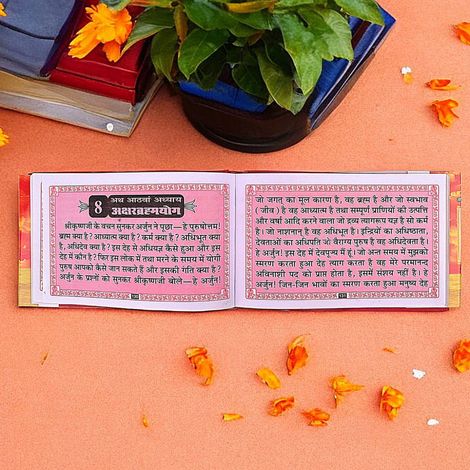 8
अथ आठवां अध्याय
अक्षरब्रह्मयोग
श्रीकृष्णजी के वचन सुनकर अर्जुन ने पूछा— हे पुरुषोत्तम!
ब्रह्म क्या है? आध्यात्म क्या है? कर्म क्या है? अधिभूत क्या
है, अधिदैव क्या है? इस देह से अधियज्ञ कैसे हुआ और इस
देह में कौन है? फिर इस लोक में तथा मरने के समय में योगी
पुरुष आपको कैसे जान सकते हैं और इसकी गति क्या है?
अर्जुन के प्रश्नों को सुनकर श्रीकृष्णजी बोले— हे अर्जुन!
जो जगत् का मूल कारण है, वह ब्रह्म है और जो स्वभाव
(जीव) है वह आध्यात्म है तथा सम्पूर्ण प्राणियों की उत्पत्ति
और वर्षा आदि करने वाला जो द्रव्य त्यागरूप यज्ञ है सो कर्म
है। जो नाशवान् है वह अधिभूत है। इन्द्रियों का अधिष्ठाता,
देवताओं का अधिपति जो वैराग्य पुरुष है वह अधिदैवत है।
हे अर्जुन! इस देह में देवपूज्य मैं हूं। जो अन्त समय में मुझको
स्मरण करता हुआ देह त्याग करता है वह मेरे परमानन्द
अविनाशी पद को प्राप्त होता है, इसमें संशय नहीं है। हे
अर्जुन! जिन-जिन भावों का स्मरण करता हुआ मनुष्य देह